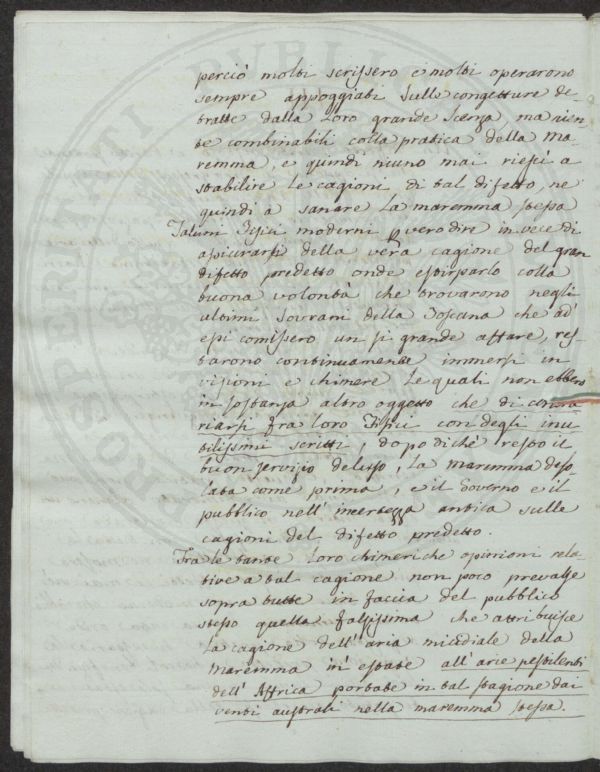 perciò molti scrissero e molti operarono
sempre appoggiati sulle congetture de-
tratte dalla loro grande Scenza ma nien-
te combinabili colla pratica della Ma
remma, e quindi niuno mai riescì a
stabilire le cagioni, di tal difetto, ne
quindi a sanare la maremma stessa
Taluni Fisici moderni p vero dire in vece di
assicurarsi della vera cagione del gran
difetto predetto onde estirparlo colla
buona volontà che trovarono negli
ultimi Sovrani della Toscana che ad
essi comissero un si grande affare, res-
tarono continuamente immersi in
visioni e chimere le quali non ebbero
in sostanza altro oggetto che di contra
riarsi fra loro Fisici con degli inu
tilissimi scritti, dopo di chè restò il
buon servizio deluso, la maremma deso-
lata come prima, e il Governo e il
pubblico nell' incertezza antica sulle
cagioni del difetto predetto.
Fra le tante loro chimeriche opinioni rela
tive a tal cagione non poco prevalse
sopra tutte in faccia del pubblico
stesso quella falsissima che attribuisce
la cagione dell' aria micidiale della
maremma in estate all' arie pestilenti
dell' Affrica portate in tal stagione dai
venti australi nella maremma stessa.
PVBLIC
PROSSI ERITATI